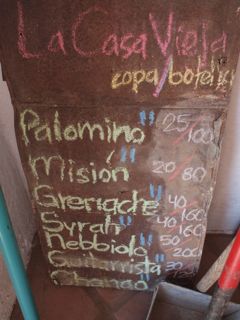 La Casa Vieja
copa/botella
Palomino " 25/100
Misión " 20/80
Grenache " 40/160
Syrah " 40/160
Nebbiolo " 50/200
Guitarrista "
Chango